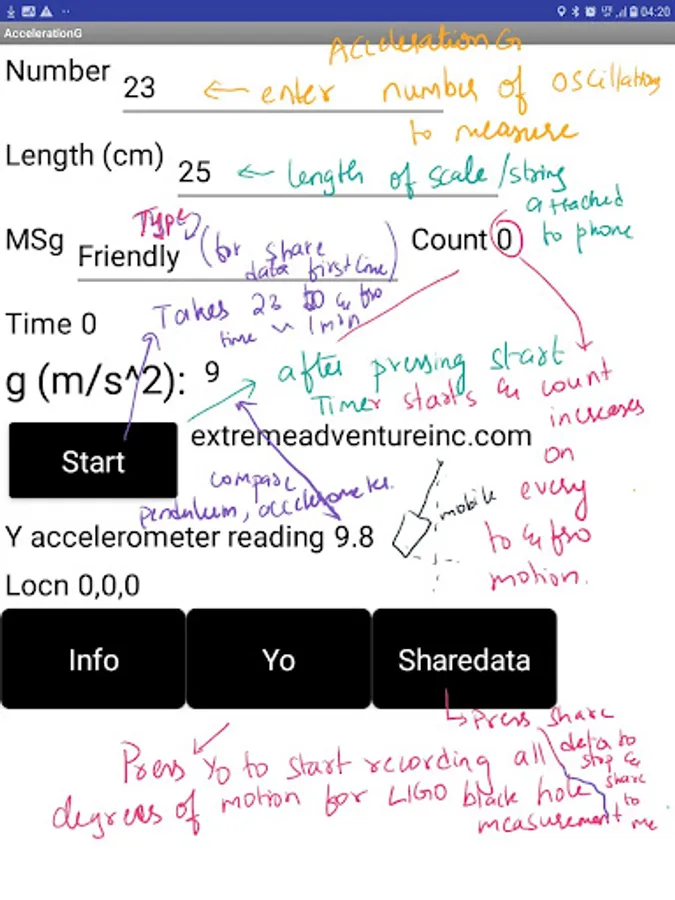 04:20
AccelerationG
AccelerationG
Number 23 ← enter number of oscillations
to measure
Length (cm) 25 ← length of scale/string
attached
to phone
Type
MSg Friendly (for share
data first line)
Count 0
Takes 23 to & fro
time ~ 1 min
Time 0
g (m/s^2): 9
after pressing start
Timer starts & count
increases
on
every
to & fro
motion.
Start
extremeadventureinc.com
compare
pendulum, accelerometer.
mobile
Y accelerometer reading 9.8
Locn 0,0,0
Info Yo Sharedata
Press share
data to
stop &
share
to
me
Press Yo to start recording all
degrees of motion for LIGO black hole
measurement